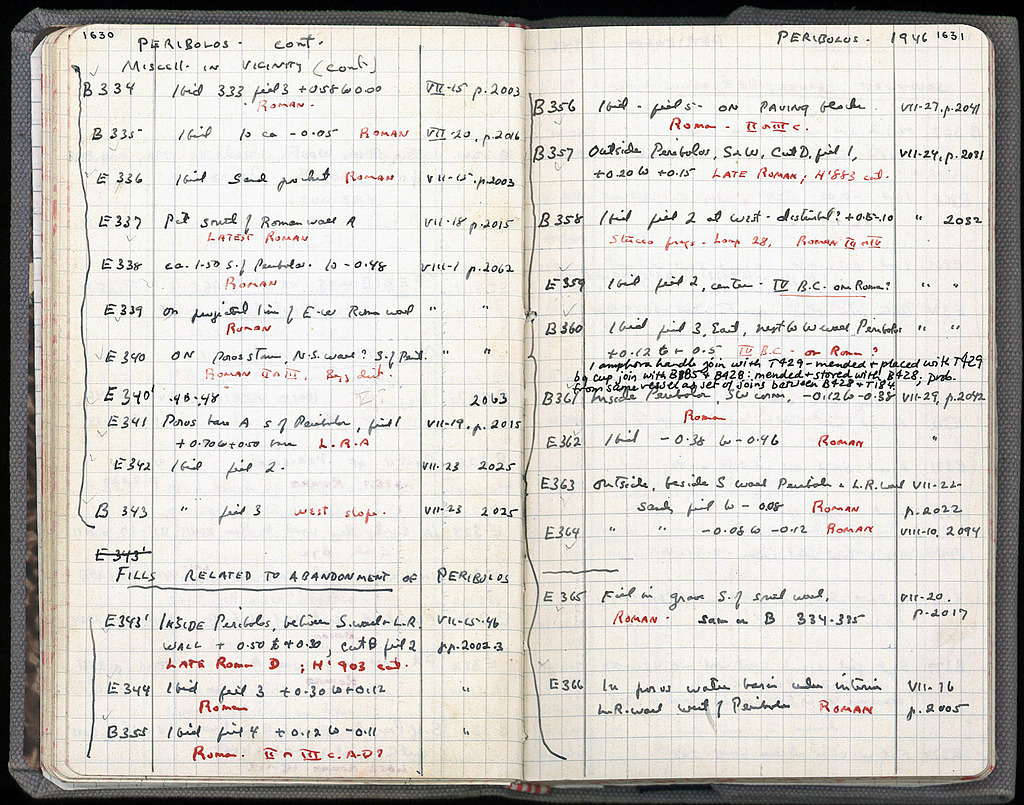 1630
PERIBOLOS - cont.
MISCELL. IN VICINITY (cont)
B 334 Ibid 333 fill 3 +0.58 to 0.00 VII-15 p.2003
ROMAN -
B 335 Ibid to ca -0.05 ROMAN VII-20, p.2016
E 336 Ibid Sand pocket ROMAN VII-15, p.2003
E 337 Pit south of Roman wall A VII-18 p.2015
LATEST ROMAN
E 338 ca. 1.50 S. of Peribolos. to -0.48 VIII-1 p.2062
ROMAN
E 339 on projected line of E-W Roman wall " "
ROMAN
E 340 ON Poros, N.S. wall? S. of Peri. " "
ROMAN II or III.
E 340' .40-.48 2063
E 341 Poros base A S of Peribolos, fill 1 VII-19, p.2015
+0.70 to +0.50 L.R.A
E 342 Ibid fill 2. VII-23 2025
B 343 " fill 3 west slope. VII-23 2025
E 343'
FILLS RELATED TO ABANDONMENT OF PERIBOLOS
E 343' INSIDE Peribolos, between S. wall & L.R. VII-15-46
WALL + 0.50 to +0.30, Cut B fill 2 pp.2002-3
LATE Roman D ; H' 903 cat.
E 344 Ibid fill 3 +0.30 to +0.12 "
Roman
B 355 Ibid fill 4 +0.12 to -0.11 "
Roman. II or III c. A.D?
PERIBOLOS. 1946 1631
B 356 Ibid - fill 5 - ON PAVING blocks VII-27, p.2041
Roman - II or III c.
B 357 Outside Peribolos, S & W, Cut D, fill 1, VII-24, p.2031
+0.20 to +0.15 LATE ROMAN; H'883 cat.
B 358 Ibid fill 2 at west - disturbed? +0.15-.10 " 2032
Stucco frags - Lamp 28, ROMAN III or IV
E 359 Ibid fill 2, center - IV B.C. or Roman? " "
B 360 Ibid fill 3, East, next to W wall Peribolos " "
+0.12 to + 0.5 IV B.C. - or Roman ?
1 amphora handle join with T429 - mended + placed with T429
bg cup join with B385 + B428: mended + stored with B428; prob.
from same vessel as set of joins between B428 + T184
B 361 Inside Peribolos, SW corner, -0.12 to -0.38 VII-29, p.2042
Roman
E 362 Ibid -0.38 to -0.46 ROMAN "
E 363 outside, beside S wall Peribolos & L.R. wall VII-22-
sandy fill to -0.08 ROMAN p.2022
E 364 " " -0.08 to -0.12 ROMAN VIII-10, 2094
E 365 Fill in grave S. of small wall. VII-20.
ROMAN. same as B 334-335 p.2017
E 366 In poros water basin under interior VII-16
L.R. wall west of Peribolos ROMAN p.2005